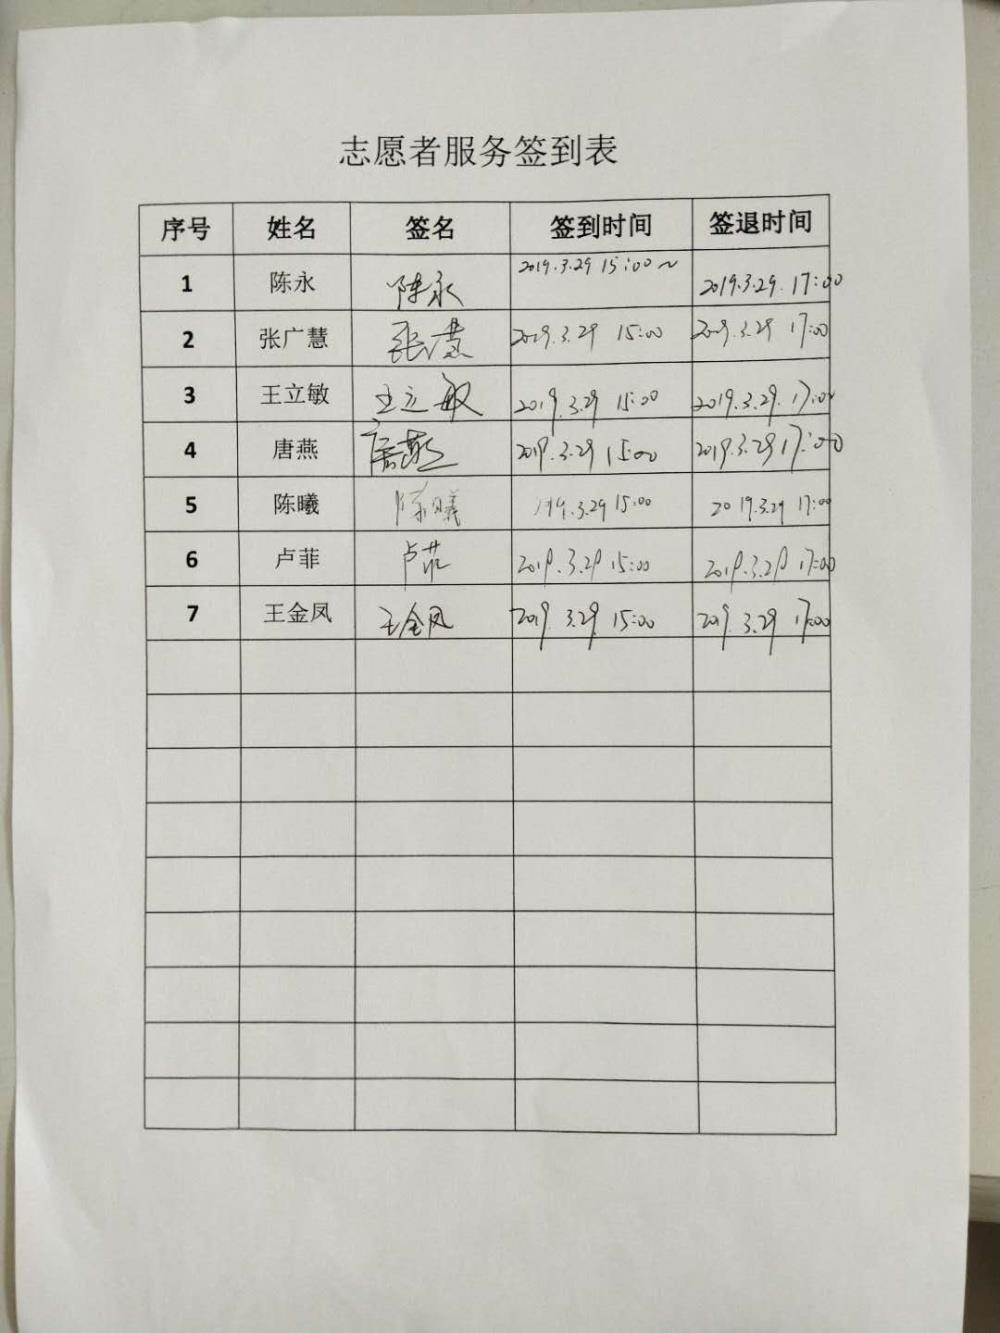 志愿者服务签到表
序号 姓名 签名 签到时间 签退时间
1 陈永 陈永 2019.3.29 15:00~ 2019.3.29. 17:00
2 张广慧 张广慧 2019.3.29 15:00 2019.3.29 17:00
3 王立敏 王立敏 2019.3.29 15:00 2019.3.29. 17:00
4 唐燕 唐燕 2019.3.29 15:00 2019.3.29 17:00
5 陈曦 陈曦 2019.3.29 15:00 2019.3.29 17:00
6 卢菲 卢菲 2019.3.29 15:00 2019.3.29 17:00
7 王金凤 王金凤 2019.3.29. 15:00 2019.3.29 17:00